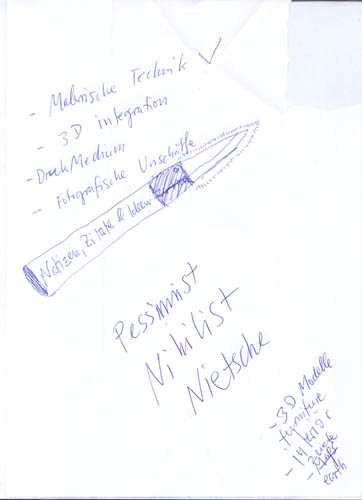 - Malerische Technik ✓
- 3D integration
- DruckMedium
- Fotografische Unschärfe
Notizen, Zitate & Ideen
Pessimist
Nihilist
Nietsche
- 3D Modelle
furniture
- interiör
earth